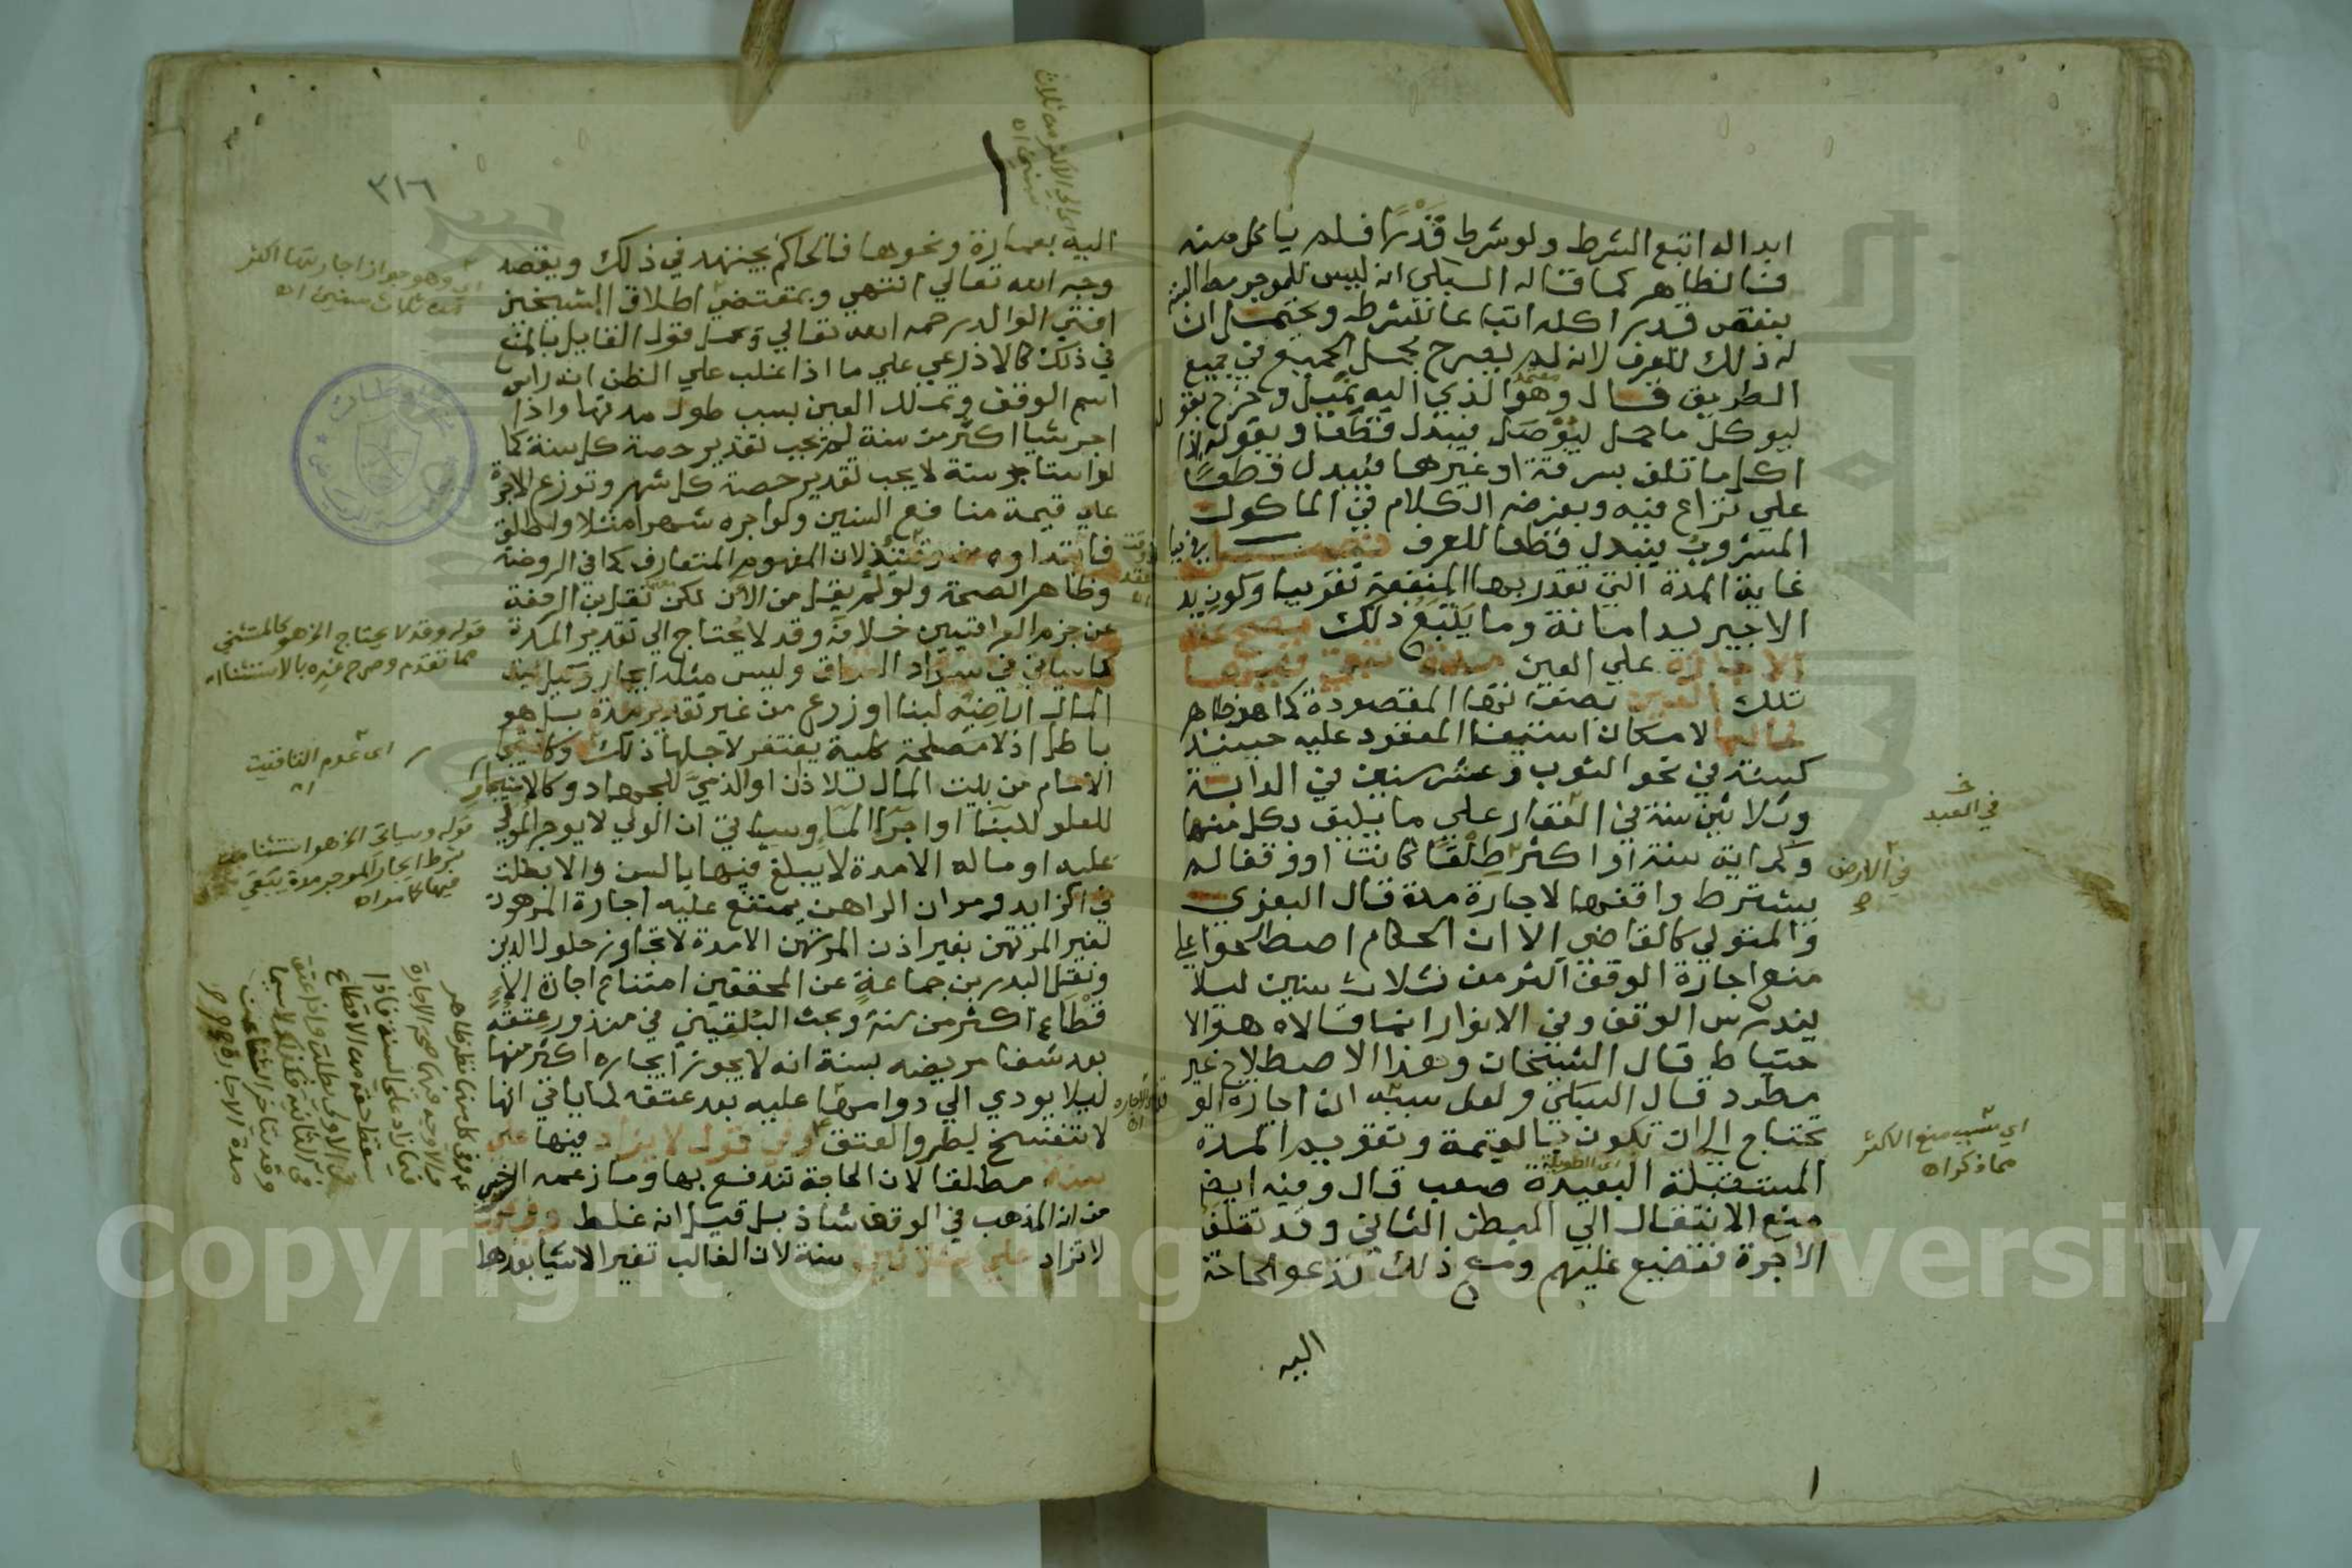 ابداله اتبع الشرط ولو شرط قدرا فلم ياكل منه
فالظاهر كما قاله السبكي انه ليس للموجر مطالبته
بنقص قدر اكله اتباعا للشرط ويحتمل ان
له ذلك للعرف لانه لم يصرح بحمل الجميع في جميع
الطريق قال وهو الذي اليه نميل وخرج بقوله
ليوكل ما حمل ليوصل فيبدل قطعا وبقوله اذا
اكل ما تلف بسرقة او غيرها فيبدل قطعا
علي نزاع فيه وبفرضه الكلام في الماكول
المشروب فيبدل قطعا للعرف فصل في بيان
غاية المدة التي تقدر بها المنفعة تقريبا وكون يد
الاجير يد امانة وما يتبع ذلك يصح عقد
الاجارة علي العين مدة تبقي فيها
تلك العين بصفاتها المقصودة كما هو ظاهر
غالبا لامكان استيفا المعقود عليه حينئذ
كسنة في نحو الثوب وعشر سنين في الدابة
وثلاثين سنة في العقار علي ما يليق بكل منها
وكماية سنة او اكثر طلقا كانت او وقفا لم
يشترط واقفها لاجارة مدة قال البغوي
والمتولي كالقاضي الا ان الحكام اصطلحوا علي
منع اجارة الوقف اكثر من ثلاث سنين ليلا
يندرس الوقف وفي الانوار انما قالاه هو الا
حتياط قال الشيخان وهذا الاصطلاح غير
مطرد قال السبكي ولعل سببه ان اجارة الو
تحتاج الي ان تكون بالقيمة وتقويم المدة
المستقبلة البعيدة صعب قال وفيه ايضا
منع الانتقال الي البطن الثاني وقد تتلف
الاجرة فتضيع عليهم ومع ذلك تدعو الحاجة
اليه
في العبد
في الارض
اي سبب منع الاكثر
مما ذكر اه
اي الطويلة
معتمد
٣١٦
اليه بعمارة ونحوها فالحاكم يجتهد في ذلك ويقصد
وجه الله تعالي انتهي وبمقتضي اطلاق الشيخين
افتي الوالد رحمه الله تعالي وحمل قول القايل بالمنع
في ذلك كالاذرعي علي ما اذا غلب علي الظن اندراس
اسم الوقف وتملك العين بسبب طول مدتها واذا
اجر شيا اكثر من سنة لم يجب تقدير حصة كل سنة كما
لو استاجر سنة لا يجب تقدير حصة كل شهر وتوزع الاجرة
علي قيمة منافع السنين ولو اجره شهرا مثلا واطلق
فابتداوه من وقتئذ لان المفهوم المتعارف كما في الروضة
وظاهر الصحة ولو لم يقل من الان لكن نقل ابن الرفعة
عن جزم العراقيين خلافه وقد لا يحتاج الي تقدير المدة
كما سياتي في سواد العراق وليس مثله ايجار وكيل بيت
المال اراضيه لبنا او زرع من غير تقدير مدة بل هو
باطل اذ لا مصلحة كلية يغتفر لاجلها ذلك وكاستيجار
الامام من بيت المال للاذان او الذمي للجهاد وكالاستيجار
للعلو للبنا او اجرا الما وسياتي ان الولي لا يوجر المولي
عليه او ماله الا مدة لا يبلغ فيها بالسن والا بطلت
في الزايد ومر ان الراهن يمتنع عليه اجارة المرهون
لغير المرتهن بغير اذن المرتهن الا مدة لا تجاوز حلول الدين
ونقل البدر بن جماعة عن المحققين امتناع اجارة الا
قطاع اكثر من سنة وبحث البلقيني في منذور عتقه
بعد شفا مريضه بسنة انه لا يجوز ايجاره اكثر منها
ليلا يودي الي دوامها عليه بعد عتقه لما ياتي انها
لا تنفسخ بطرو العتق وفي قول لا يزاد فيها علي
سنة مطلقا لان الحاجة تندفع بها وما زعمه السرخسي
من انه المذهب في الوقف شاذ بل قيل انه غلط وفي قول
لا تزاد علي ثلاثين سنة لان الغالب تغير الاشيا بعدها
اي وهو جواز اجارتها اكثر
من ثلاث سنين اه
قوله وقد لا يحتاج الخ هو كالمستثني
مما تقدم وصرح غيره بالاستثنا اه
اي عدم التاقيت
اه
قوله وسياتي الخ هو استثنا من
شرط ايجار الموجر مدة يبقي
فيها كما مر اه